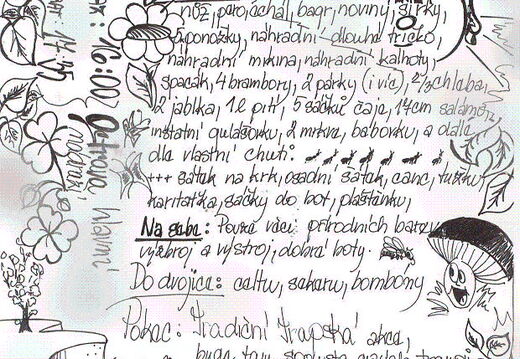 nůž, paroháčal, bagr, noviny, sirky,
ponožky, náhradní dlouhé tričko,
náhradní mikina, náhradní kalhoty,
spacák, 4 brambory, 2 párky (i víc), 2/3 chleba,
2 jablka, 1l pití, 5 sáčků čaje, 14cm salámu,
instatní gulášovku, 2 mrkve, bábovku, a dále
dle vlastní chuti:
+++ šátek na krk, osadní šátek, canc, tužku,
karitatka, sáčky do bot, pláštěnku,
Na sebe: Pouze věci přírodních barev,
výzbroj a výstroj, dobré boty.
Do dvojice: celtu, sekeru, bombony
Pokec: Tradiční Trapská akce,
bude tam spousta
17:45
16:00
Ostrava hlavní
nádraží